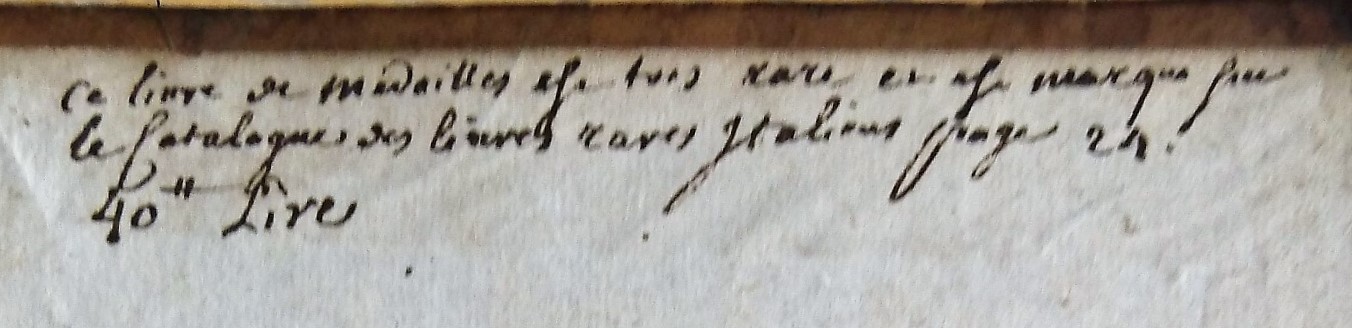 Ce livre de medailles est tres rare et est marqué sur
le Catalogue des livres rares Italiens page 24.
40" Lire